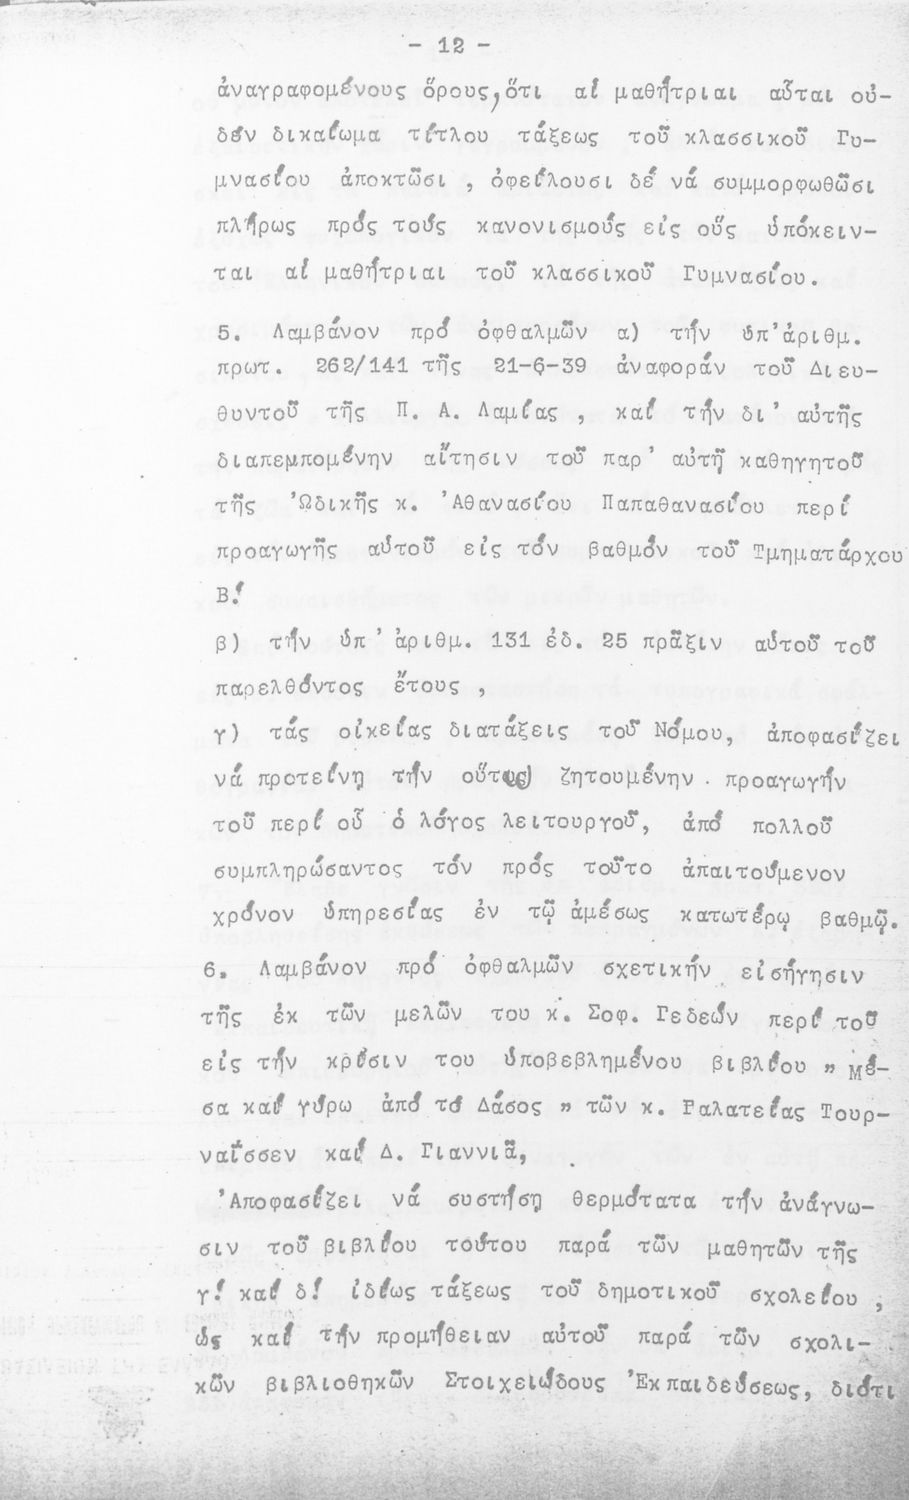 - 12 -
ἀναγραφομένους ὅρους, ὅτι αἱ μαθήτριαι αὗται οὐ-
δέν δικαίωμα τίτλου τάξεως τοῦ κλασσικοῦ Γυ-
μνασίου ἀποκτῶσι , ὀφείλουσι δέ νά συμμορφωθῶσι
πλήρως πρός τούς κανονισμούς εἰς οὕς ὑπόκειν-
ται αἱ μαθήτριαι τοῦ κλασσικοῦ Γυμνασίου.
5. Λαμβάνον πρό ὀφθαλμῶν α) τήν ὑπ' ἀριθμ.
πρωτ. 262/141 τῆς 21-6-39 ἀναφοράν τοῦ Διευ-
θυντοῦ τῆς Π. Α. Λαμίας , καί τήν δι' αὐτῆς
διαπεμπομένην αἴτησιν τοῦ παρ' αὐτῇ καθηγητοῦ
τῆς Ὠδικῆς κ. Ἀθανασίου Παπαθανασίου περί
προαγωγῆς αὐτοῦ εἰς τόν βαθμόν τοῦ Τμηματάρχου
Β!
β) τήν ὑπ' ἀριθμ. 131 ἐδ. 25 πρᾶξιν αὐτοῦ τοῦ
παρελθόντος ἔτους ,
γ) τάς οἰκείας διατάξεις τοῦ Νόμου, ἀποφασίζει
νά προτείνη τήν οὕτως ζητουμένην . προαγωγήν
τοῦ περί οὗ ὁ λόγος λειτουργοῦ, ἀπό πολλοῦ
συμπληρώσαντος τόν πρός τοῦτο ἀπαιτούμενον
χρόνον ὑπηρεσίας ἐν τῷ ἀμέσως κατωτέρῳ βαθμῷ.
6. Λαμβάνον πρό ὀφθαλμῶν σχετικήν εἰσήγησιν
τῆς ἐκ τῶν μελῶν του κ. Σοφ. Γεδεών περί τοῦ
εἰς τήν κρίσιν του ὑποβεβλημένου βιβλίου " Μέ-
σα καί γύρω ἀπό τό Δάσος " τῶν κ. Γαλατείας Τουρ-
ναῖσσεν καί Δ. Γιαννιᾶ,
Ἀποφασίζει νά συστήσῃ θερμότατα τήν ἀνάγνω-
σιν τοῦ βιβλίου τούτου παρά τῶν μαθητῶν τῆς
γ! καί δ! ἰδίως τάξεως τοῦ δημοτικοῦ σχολείου ,
ὡς καί τήν προμήθειαν αὐτοῦ παρά τῶν σχολι-
κῶν βιβλιοθηκῶν Στοιχειώδους Ἐκπαιδεύσεως, διότι